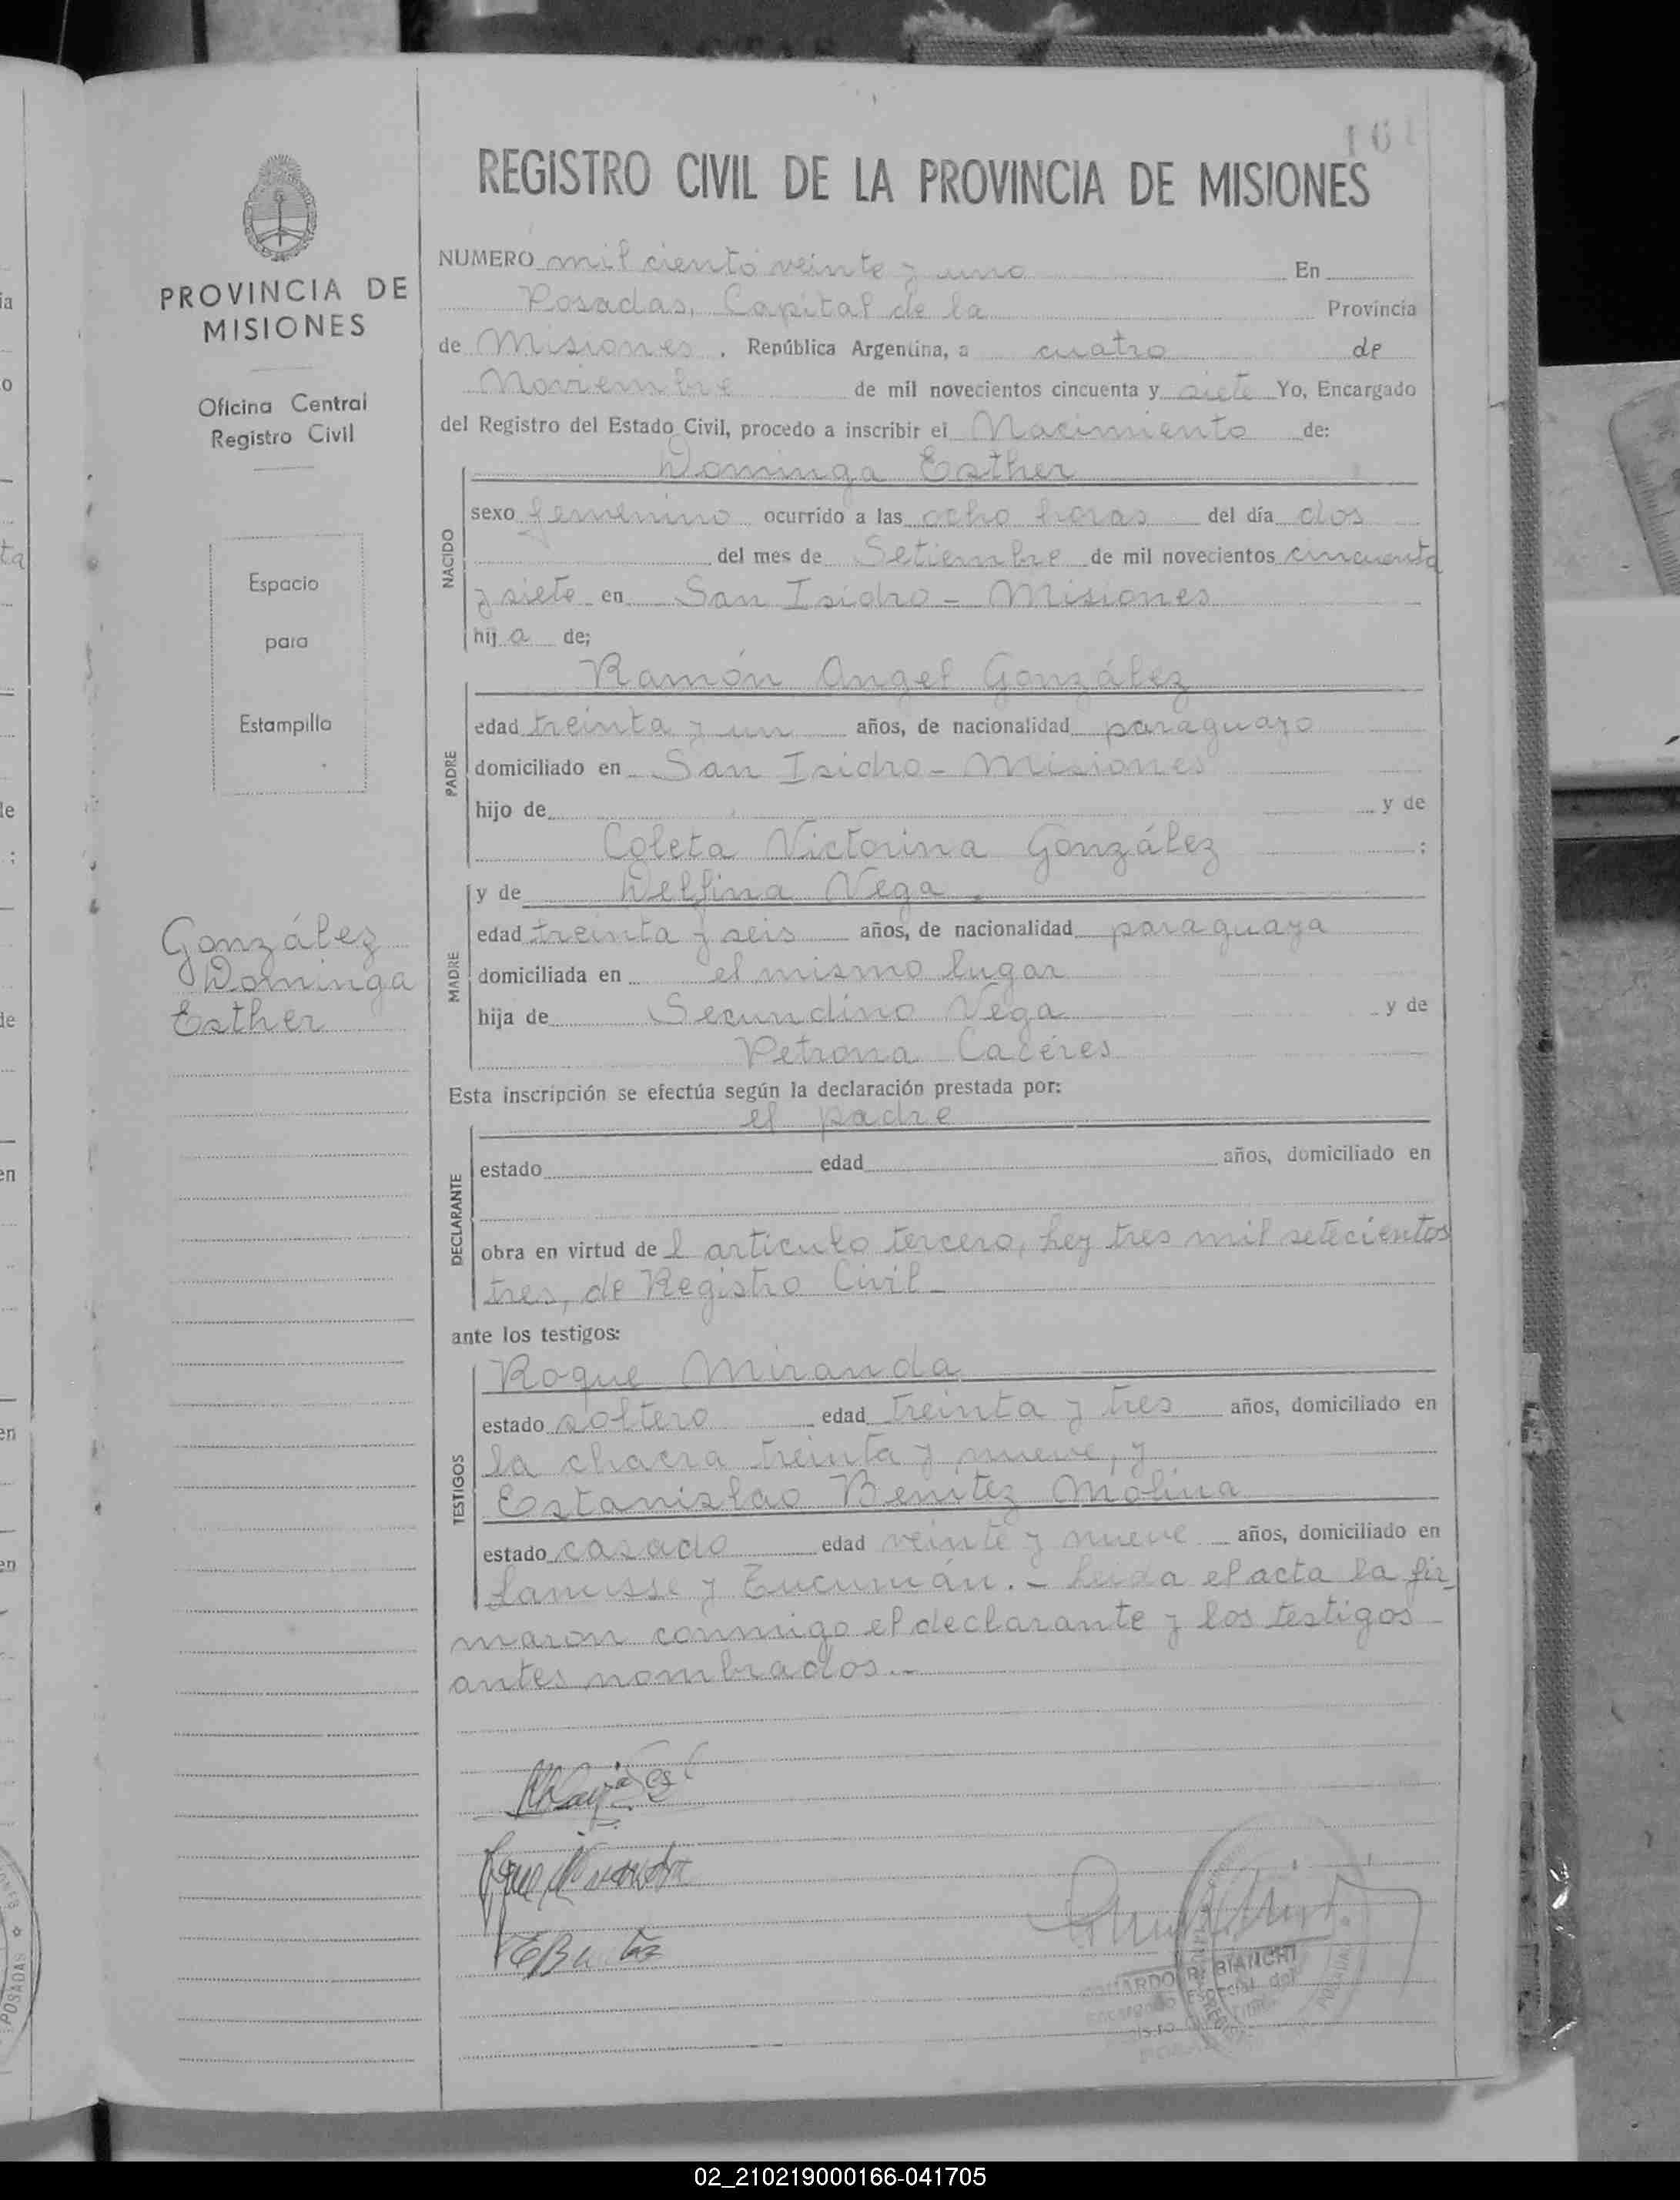 161
REGISTRO CIVIL DE LA PROVINCIA DE MISIONES
PROVINCIA DE
MISIONES
Oficina Central
Registro Civil
Espacio
para
Estampilla
González
Dominga
Esther
NUMERO mil ciento veinte y uno En
Posadas, Capital de la Provincia
de Misiones, República Argentina, a cuatro de
Noviembre de mil novecientos cincuenta y siete Yo, Encargado
del Registro del Estado Civil, procedo a inscribir el Nacimiento de:
NACIDO
Dominga Esther
sexo femenino ocurrido a las ocho horas del día dos
del mes de Setiembre de mil novecientos cincuenta
y siete en San Isidro - Misiones
hij a de;
PADRE
Ramón Angel González
edad treinta y un años, de nacionalidad paraguayo
domiciliado en San Isidro - Misiones
hijo de y de
Coleta Victorina González ;
MADRE
y de Delfina Vega.
edad treinta y seis años, de nacionalidad paraguaya
domiciliada en el mismo lugar
hija de Secundino Vega y de
Petrona Cacéres
Esta inscripción se efectúa según la declaración prestada por:
DECLARANTE
el padre
estado edad años, domiciliado en
obra en virtud de l artículo tercero, ley tres mil setecientos
tres, de Registro Civil -
ante los testigos:
TESTIGOS
Roque Miranda
estado soltero edad treinta y tres años, domiciliado en
la chacra treinta y nueve, y
Estanislao Benítez Molina
estado casado edad veinte y nueve años, domiciliado en
Lanusse y Tucumán. - Leida el acta la fir-
maron conmigo el declarante y los testigos
antes nombrados. -
BIANCHI
POSADAS
02_210219000166-041705